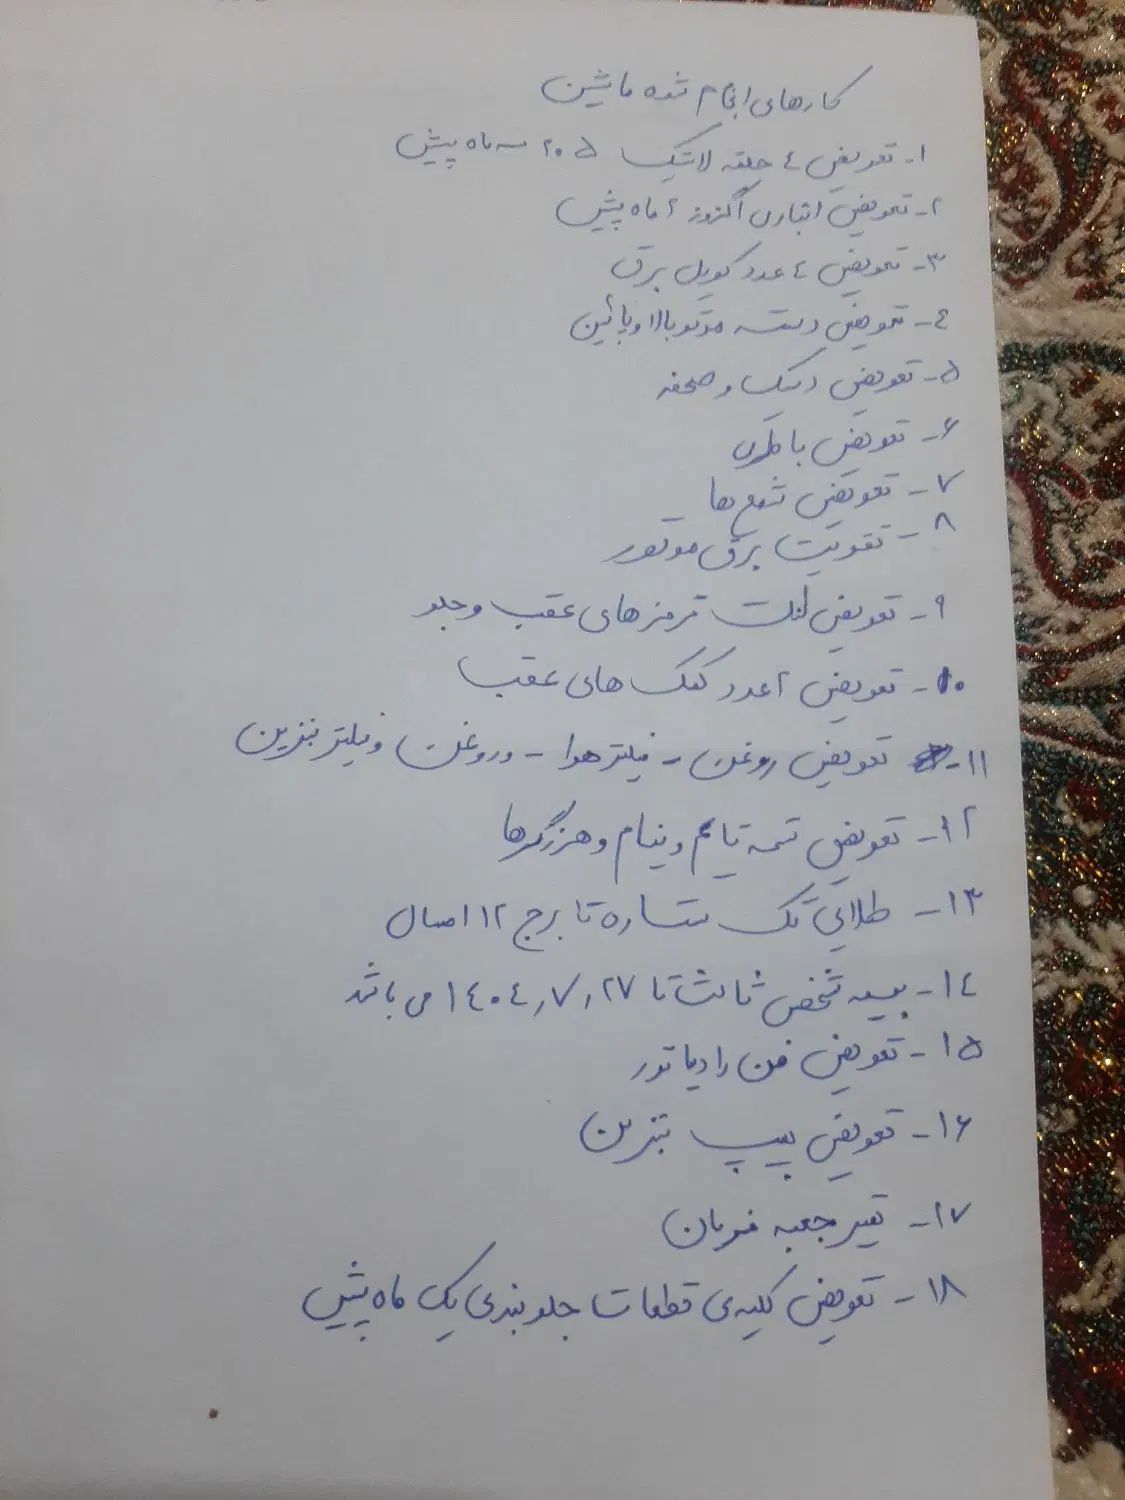 کارهای انجام شده ماشین
۱- تعویض ٤ حلقه لاستیک ۲۰۵ سه ماه پیش
۲- تعویض انباری اگزوز ۲ ماه پیش
۳- تعویض ٤ عدد کویل برق
٤- تعویض دسته موتور بالا و پائین
۵- تعویض دیسک و صحفه
۶- تعویض باطری
۷- تعویض شمع ها
۸- تقویت برق موتور
۹- تعویض لنت ترمزهای عقب و جلو
۱۰- تعویض ۲ عدد کمک های عقب
۱۱- تعویض روغن - فیلتر هوا - و روغن و فیلتر بنزین
۱۲- تعویض تسمه تایم و دینام و هزرگردها
۱۳- طلایی تک ستاره تا برج ۱۲ امسال
۱٤- بیمه شخص ثالث تا ۱٤۰٤٫۷٫۲۷ می باشد
۱۵- تعویض فن رادیاتور
۱۶- تعویض پمپ بنزین
۱۷- تعمیر جعبه فرمان
۱۸- تعویض کلیه ی قطعات جلوبندی یک ماه پیش